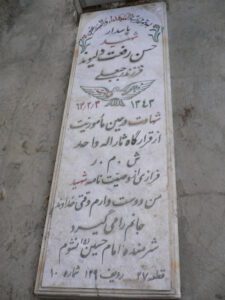 پاسدار
شهید
حسن رفعت دلیوند
فرزند رجبعلی
۱۳۴۳ ۶۲/۲/۳
شهادت در حین مأموریت
از قرارگاه ثاراله واحد
ش . م . ر
فرازی از وصیت نامه شهید
من دوست دارم وقتی خداوند
جانم را می گیرد
شرمنده امام حسین نشوم
قطعه ۲۷ ردیف ۱۲۹ شماره ۱۰